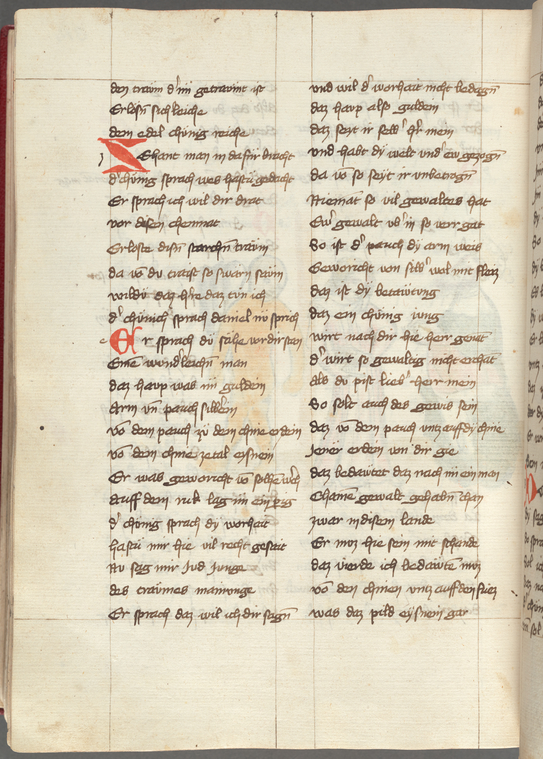 den traum d' im getraumt ist
Erlösn sichleiche
dem edel chünig reiche
Zehant man in dafür bracht
d' chünig sprach wes hastu gedacht
Er sprach ich wil dir drat
vor disen chemnat
Erloste disn starchn traum
da vō du tragst so swarn saum
wildu daz h're daz tün ich
d' chünich sprach daniel nü sprich
Er sprach du sahe vor dir stan
Eine wundleichn man
daz haup was im guldein
Arm vn̄ pauch silb'ein
vō dem pauch zü dem chnie erdein
vō dem chnie zetal eysnein
Er was geworicht vō solhe
auff dem ruk lag im ein
d' chönig sprach dy worheit
hastu mir hie vil recht geseit
Nu sag mir Jud junge
des traumes mainunge
Er sprach daz wil ich dir sagn̄
und wil d' worhait nicht bedagn̄
daz haup alß guldein
daz seyt ir selb' h'r mein
vnd habt dy welt vnd' ew gezogn̄
da vō so seyt ir vnbetrogn̄
Niemāt so vil gewaltes hat
Ew' gewalt vb' in so verr gat
So ist d' pauch dy arm weis
Geworicht von silb' wol mit fleiz
daz ist dy betäwtung
daz ein chünig jung
wirt nach dir hie her genāt
d' wirt so gewaltig nicht erchāt
Als du pist lieb' herr mein
So solt auch des gewis sein
daz vō dem pauch vntz auff dy chnie
Jener erden vm dir gie
daz bedäwtet daz nach im ein man
Chainē gewalt gehabn̄ chan
zwar in disem lande
Er muz hie sein mit schande
daz vierde ich bedäwten muz
vō den chnien vntz auff den fuez
was daz pild eysnein gar